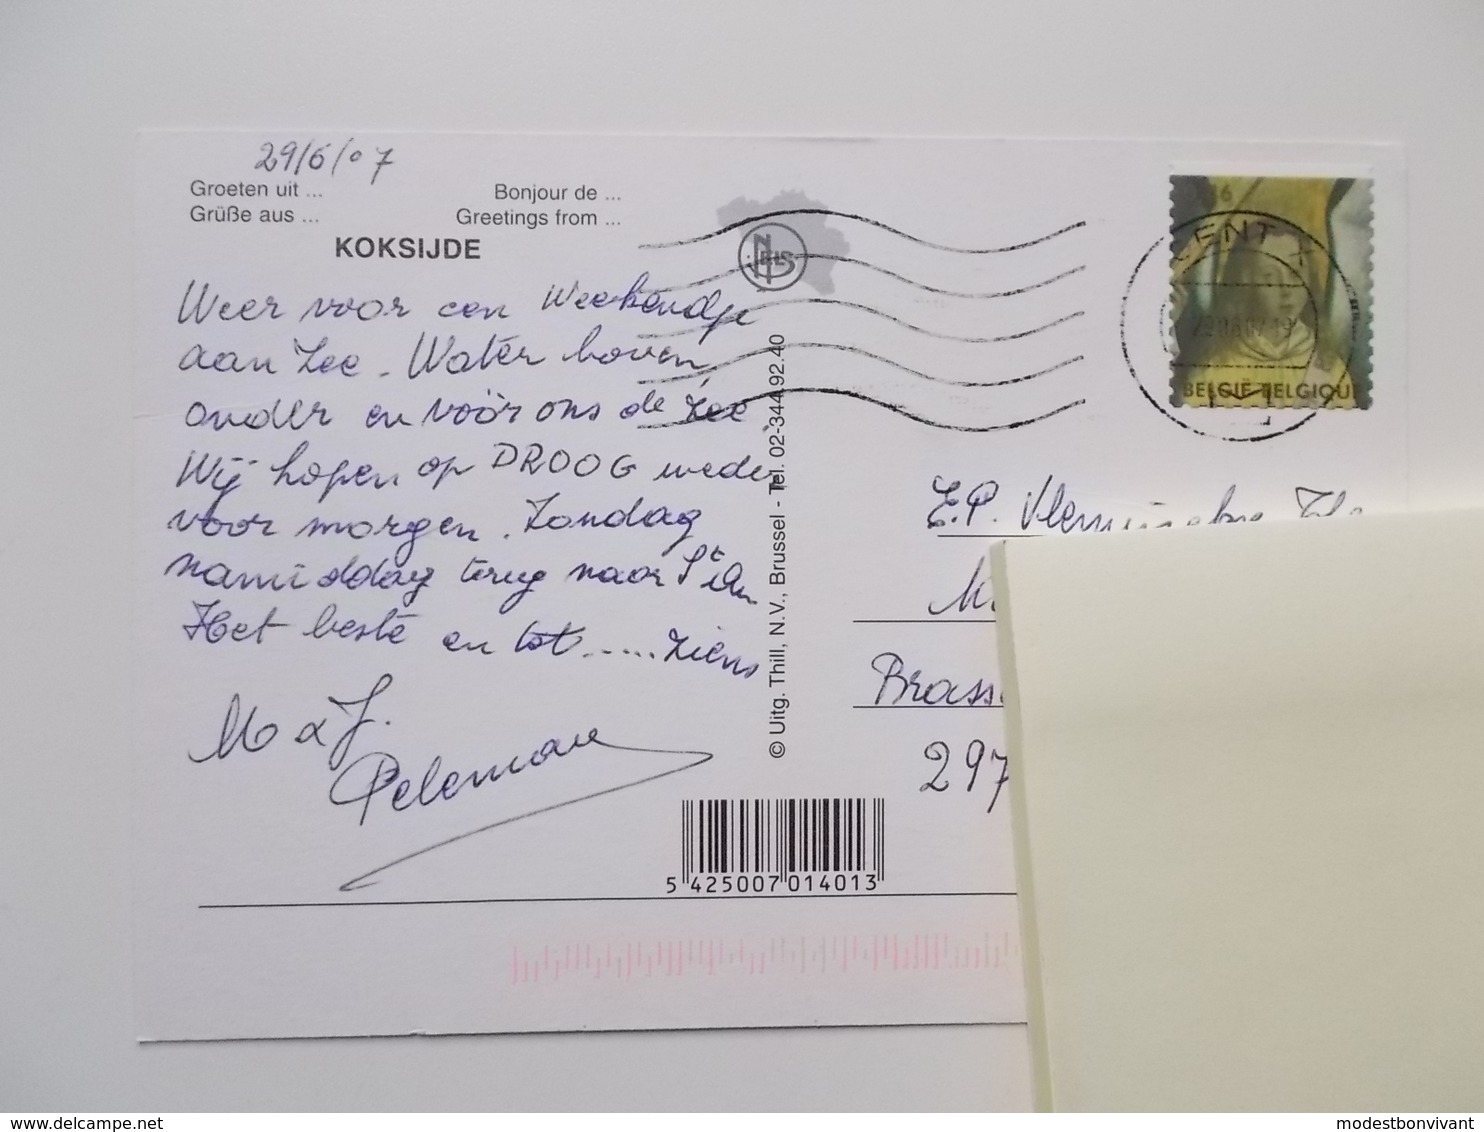 29/6/07
Groeten uit ... Bonjour de ...
Grüße aus ... Greetings from ...
KOKSIJDE
NELS
Weer voor een Weekendje
aan Zee. Water boven
onder en vóór ons de Zee.
Wij hopen op DROOG weder
voor morgen. Zondag
namiddag terug naar St An
Het beste en tot ..... ziens
M & J.
Peleman
© Uitg. Thill, N.V., Brussel - Tel. 02-344.92.40
5 425007 014013
GENT X
BELGIË BELGIQUE
E.P. Vlerminckx
Brass
297
delcampe.net
modestbonvivant